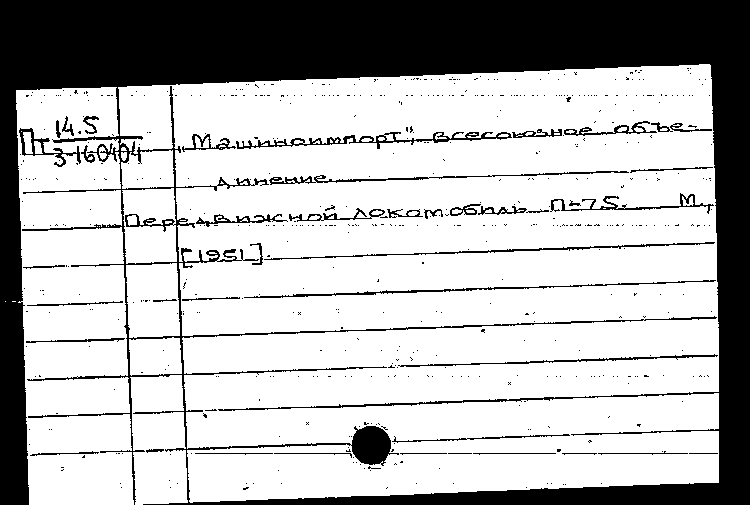 Пт 14.5
3-160404
„Машиноимпорт", всесоюзное объе-
динение.
Передвижной локомобиль П-75. М.,
[1951].